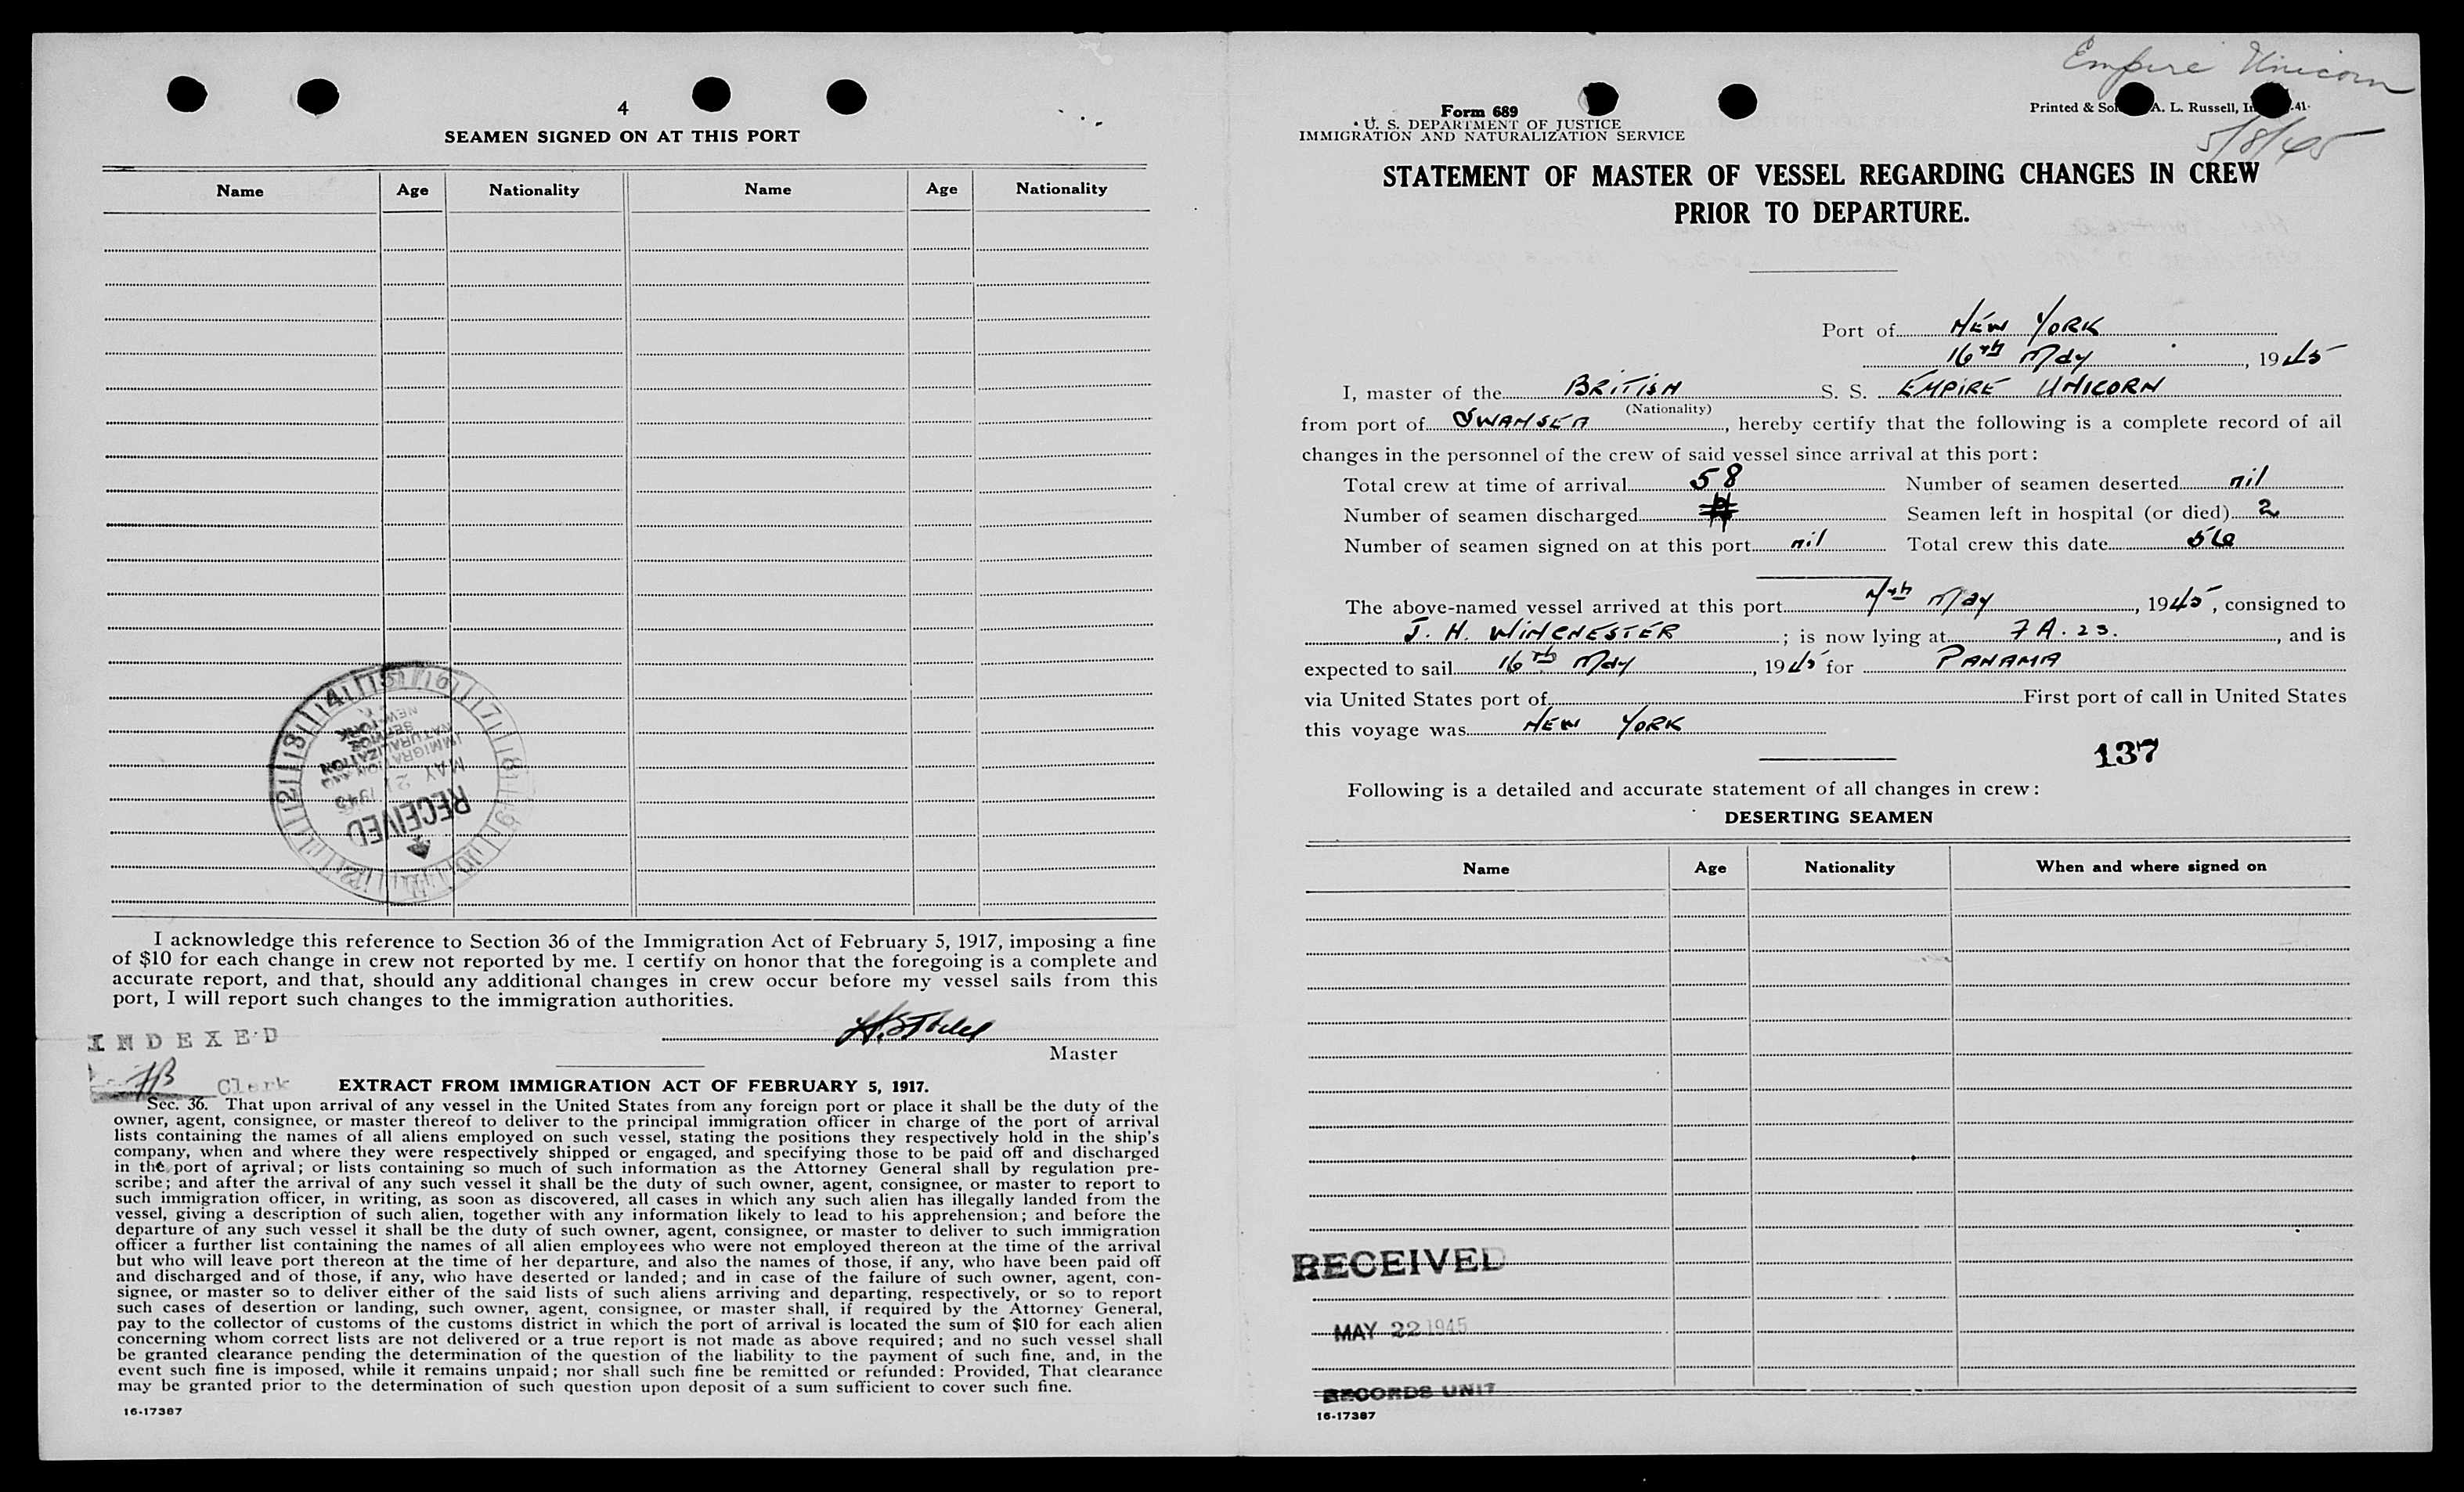 4
SEAMEN SIGNED ON AT THIS PORT
Name Age Nationality Name Age Nationality
RECEIVED
MAY 21 1945
IMMIGRATION AND
NATURALIZATION
SERVICE
NEW YORK
I acknowledge this reference to Section 36 of the Immigration Act of February 5, 1917, imposing a fine
of $10 for each change in crew not reported by me. I certify on honor that the foregoing is a complete and
accurate report, and that, should any additional changes in crew occur before my vessel sails from this
port, I will report such changes to the immigration authorities.
INDEXED
Master
Clerk
EXTRACT FROM IMMIGRATION ACT OF FEBRUARY 5, 1917.
Sec. 36. That upon arrival of any vessel in the United States from any foreign port or place it shall be the duty of the
owner, agent, consignee, or master thereof to deliver to the principal immigration officer in charge of the port of arrival
lists containing the names of all aliens employed on such vessel, stating the positions they respectively hold in the ship's
company, when and where they were respectively shipped or engaged, and specifying those to be paid off and discharged
in the port of arrival; or lists containing so much of such information as the Attorney General shall by regulation pre-
scribe; and after the arrival of any such vessel it shall be the duty of such owner, agent, consignee, or master to report to
such immigration officer, in writing, as soon as discovered, all cases in which any such alien has illegally landed from the
vessel, giving a description of such alien, together with any information likely to lead to his apprehension; and before the
departure of any such vessel it shall be the duty of such owner, agent, consignee, or master to deliver to such immigration
officer a further list containing the names of all alien employees who were not employed thereon at the time of the arrival
but who will leave port thereon at the time of her departure, and also the names of those, if any, who have been paid off
and discharged and of those, if any, who have deserted or landed; and in case of the failure of such owner, agent, con-
signee, or master so to deliver either of the said lists of such aliens arriving and departing, respectively, or so to report
such cases of desertion or landing, such owner, agent, consignee, or master shall, if required by the Attorney General,
pay to the collector of customs of the customs district in which the port of arrival is located the sum of $10 for each alien
concerning whom correct lists are not delivered or a true report is not made as above required; and no such vessel shall
be granted clearance pending the determination of the question of the liability to the payment of such fine, and, in the
event such fine is imposed, while it remains unpaid; nor shall such fine be remitted or refunded: Provided, That clearance
may be granted prior to the determination of such question upon deposit of a sum sufficient to cover such fine.
16-17387
Empire Unicorn
Form 689
U. S. DEPARTMENT OF JUSTICE
IMMIGRATION AND NATURALIZATION SERVICE
Printed & A. L. Russell,
5/8/45
STATEMENT OF MASTER OF VESSEL REGARDING CHANGES IN CREW
PRIOR TO DEPARTURE.
Port of NEW YORK
16th May, 1945
I, master of the BRITISH S. S. EMPIRE UNICORN
(Nationality)
from port of SWANSEA, hereby certify that the following is a complete record of all
changes in the personnel of the crew of said vessel since arrival at this port:
Total crew at time of arrival 58 Number of seamen deserted nil
Number of seamen discharged Seamen left in hospital (or died) 2
Number of seamen signed on at this port nil Total crew this date 56
The above-named vessel arrived at this port 7th May, 1945, consigned to
J. H. WINCHESTER; is now lying at 7 A. 23., and is
expected to sail 16th May, 1945 for PANAMA
via United States port of First port of call in United States
this voyage was NEW YORK
137
Following is a detailed and accurate statement of all changes in crew:
DESERTING SEAMEN
Name Age Nationality When and where signed on
RECEIVED
MAY 22 1945
RECORDS UNIT
16-17387